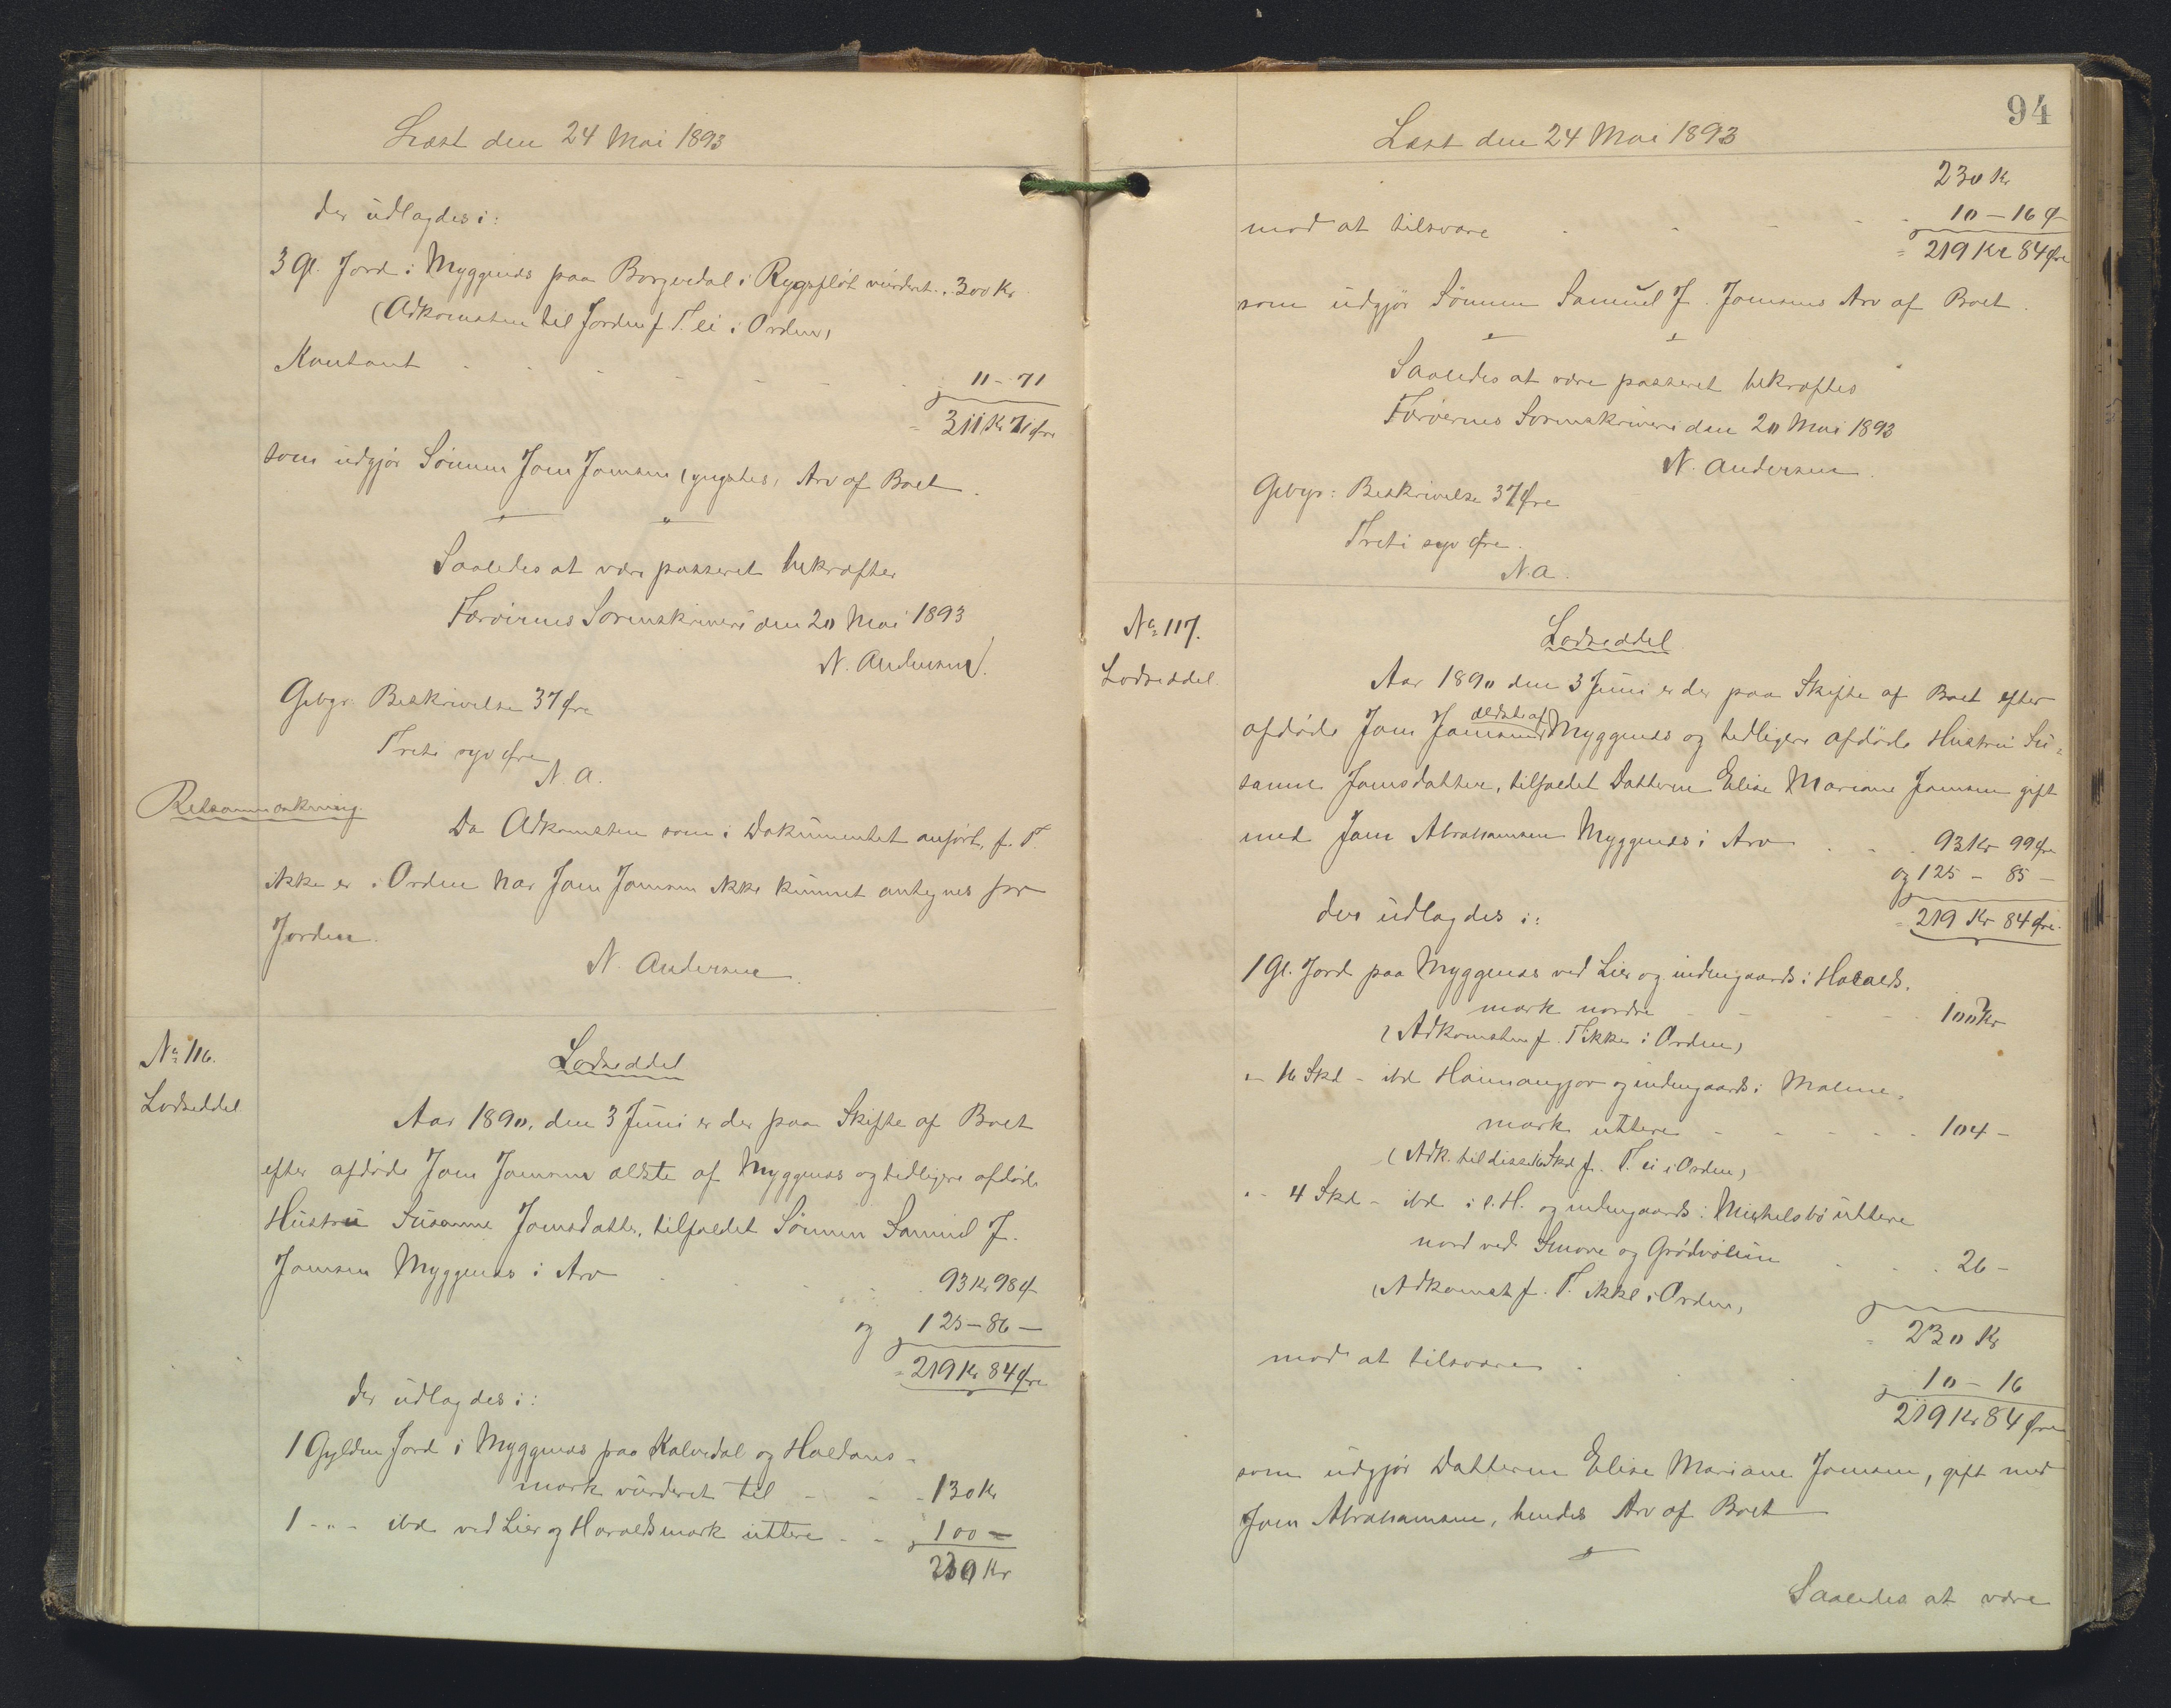 Læst den 24 Mai 1893
der udlagdes i:
3 Gl. Jord i Myggenæs paa Borgerdal i Rygsfløt vurderet. 300 Kr
(Adkomsten til Jorden f. T. ei i Orden)
Kontant 11 - 71
= 311 Kr 71 Øre
som udgjør Sønnen Joen Joensens (yngstes) Arv af Boet.
Saaledes at være passeret bekræfter
Færøernes Sorenskriveri den 20 Mai 1893
N. Andersen.
Gebyr: Beskrivelse 37 Øre
Treti syv Øre
N. A.
Retsanmærkning.
Da Adkomsten som i Dokumentet anført, f. T.
ikke er i Orden har Joen Joensen ikke kunnet antegnes for
Jorden.
N. Andersen.
No 116.
Lodseddel
Lodseddel
Aar 1890, den 3 Juni er der paa Skifte af Boet
efter afdøde Joen Joensen ældste af Myggenæs og tidligere afdøde
Hustru Susanne Joensdatter, tilfaldet Sønnen Samuel J.
Joensen Myggenæs i Arv 93 Kr 98 Ø
og 125 - 86 -
= 219 Kr 84 Øre
der udlagdes i:
1 Gylden Jord i Myggenæs paa Kalvedal og Haldans-
mark vurderet til 130 Kr
1 - " - ibd ved Lier og Haraldsmark uttere 100 -
230 Kr
94
Læst den 24 Mai 1893
230 Kr
mod at tilsvare 10 - 16 Ø
= 219 Kr 84 Øre
som udgjør Sønnen Samuel J. Joensens Arv af Boet.
Saaledes at være passeret bekræftes
Færøernes Sorenskriveri den 20 Mai 1893
N. Andersen.
Gebyr: Beskrivelse 37 Øre
Treti syv Øre.
N. A.
No 117.
Lodseddel.
Lodseddel
Aar 1890 den 3 Juni er der paa Skifte af Boet efter
ældste af
afdøde Joen Joensens Myggenæs og tidligere afdøde Hustru Su-
sanne Joensdatter, tilfaldet Datteren Elise Mariane Joensen gift
med Joen Abrahamsen Myggenæs i Arv 93 Kr 99 Øre
og 125 - 85 -
der udlagdes i: = 219 Kr 84 Øre.
1 Gl. Jord paa Myggenæs ved Lier og indengaards i Haralds-
mark nordre 100 Kr
(Adkomsten f. T. ikke i Orden)
" - 16 Skd - ibd Hainangjov og indengaards i Malme-
mark uttere 104 -
(Adk. til disse 16 Skd f. T. ei i Orden)
" - 4 Skd - ibd i l. H. og indengaards i Mickelsbø uttere
nord ved Smore og Grødvølin 26 -
(Adkomst f. T. ikke i Orden)
= 230 Kr
mod at tilsvare 10 - 16
219 Kr 84 Øre
som udgjør Datteren Elise Mariane Joensen, gift med
Joen Abrahamsen, hendes Arv af Boet
Saaledes at være